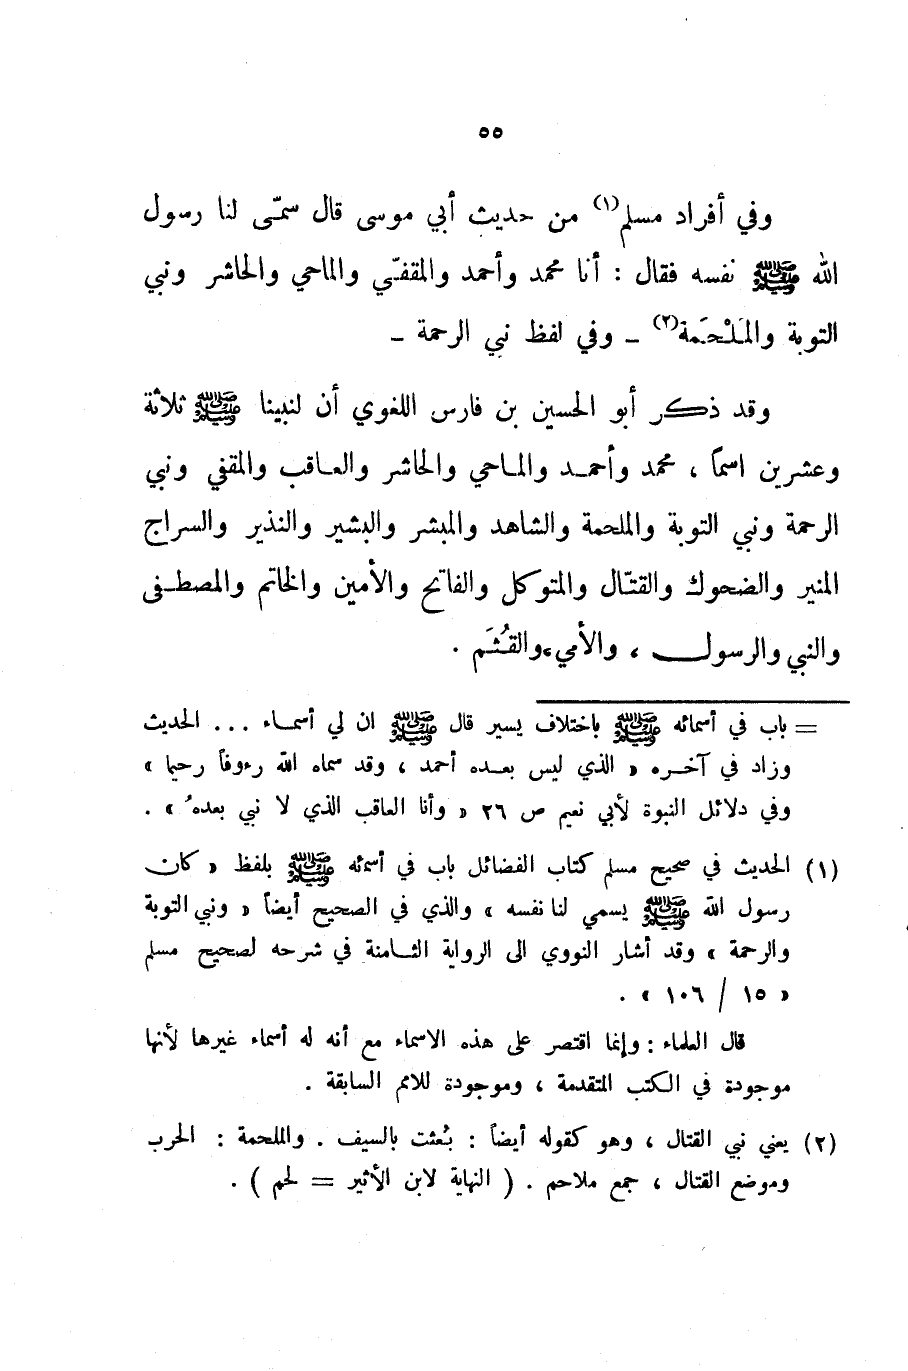 ٥٥
وفي أفراد مسلم(١) من حديث أبي موسى قال سمّى لنا رسول
الله ﷺ نفسه فقال : أنا محمد وأحمد والمقفّي والماحي والحاشر ونبي
التوبة والمَلْحَمة(٢) ــ وفي لفظ نبي الرحمة ــ
وقد ذكر أبو الحسين بن فارس اللغوي أن لنبينا ﷺ ثلاثة
وعشرين اسماً ، محمد وأحمد والماحي والحاشر والعاقب والمقفي ونبي
الرحمة ونبي التوبة والملحمة والشاهد والمبشر والبشير والنذير والسراج
المنير والضحوك والقتّال والمتوكل والفاتح والأمين والخاتم والمصطفى
والنبي والرسول ، والأمي،والقُثَم .
= باب في أسمائه ﷺ باختلاف يسير قال ﷺ ان لي أسماء ... الحديث
وزاد في آخره « الذي ليس بعده أحمد ، وقد سماه الله رءوفاً رحيما »
وفي دلائل النبوة لأبي نعيم ص ٢٦ « وأنا العاقب الذي لا نبي بعدهُ » .
(١) الحديث في صحيح مسلم كتاب الفضائل باب في أسمئه ﷺ بلفظ « كان
رسول الله ﷺ يسمي لنا نفسه » والذي في الصحيح أيضاً « ونبي التوبة
والرحمة » وقد أشار النووي الى الرواية الثامنة في شرحه لصحيح مسلم
« ١٥ / ١٠٦ » .
قال العلماء : وإنما اقتصر على هذه الاسماء مع أنه له أسماء غيرها لأنها
موجودة في الكتب المتقدمة ، وموجودة للامم السابقة .
(٢) يعني نبي القتال ، وهو كقوله أيضاً : بُعثت بالسيف . والملحمة : الحرب
وموضع القتال ، جمع ملاحم . ( النهاية لابن الأثير = لحم ) .